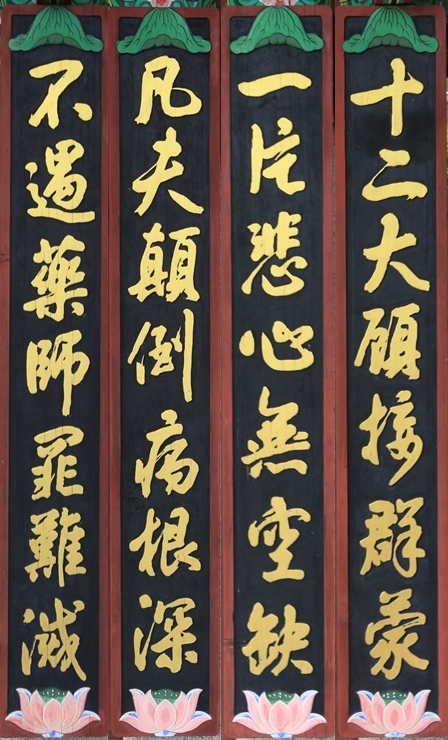 十二大願接群蒙
一片悲心無空缺
凡夫顛倒病根深
不遇藥師罪難滅